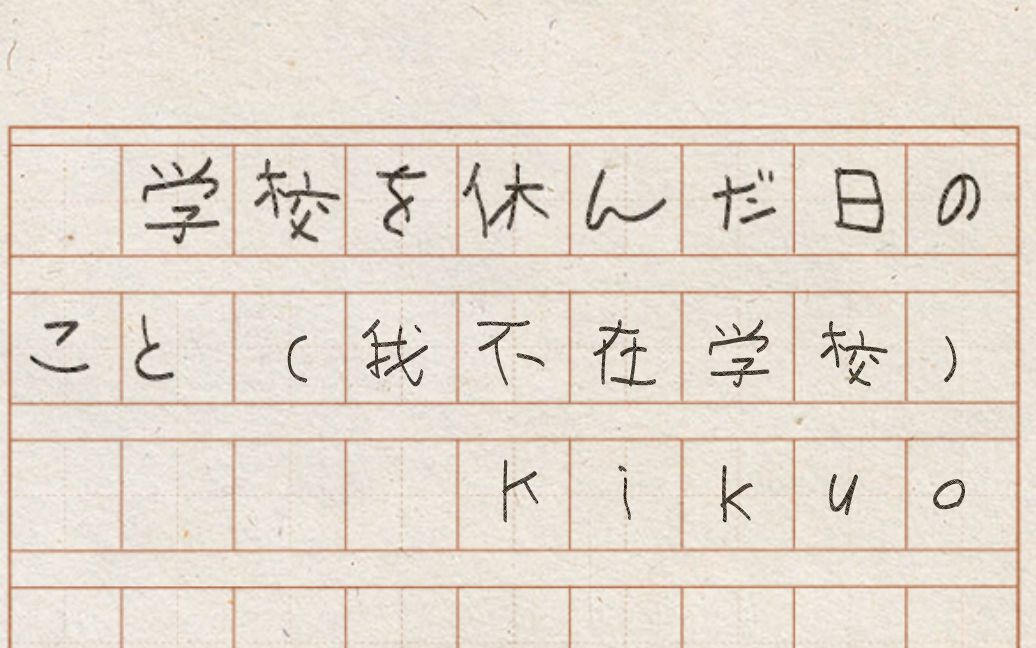 学校を休んだ日の
こと(我不在学校)
kikuo